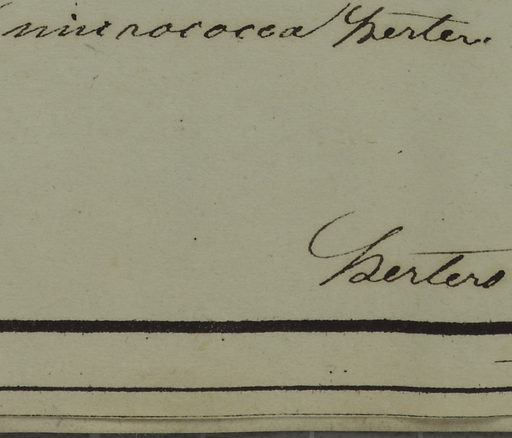 microcoeca Berter.
Bertero